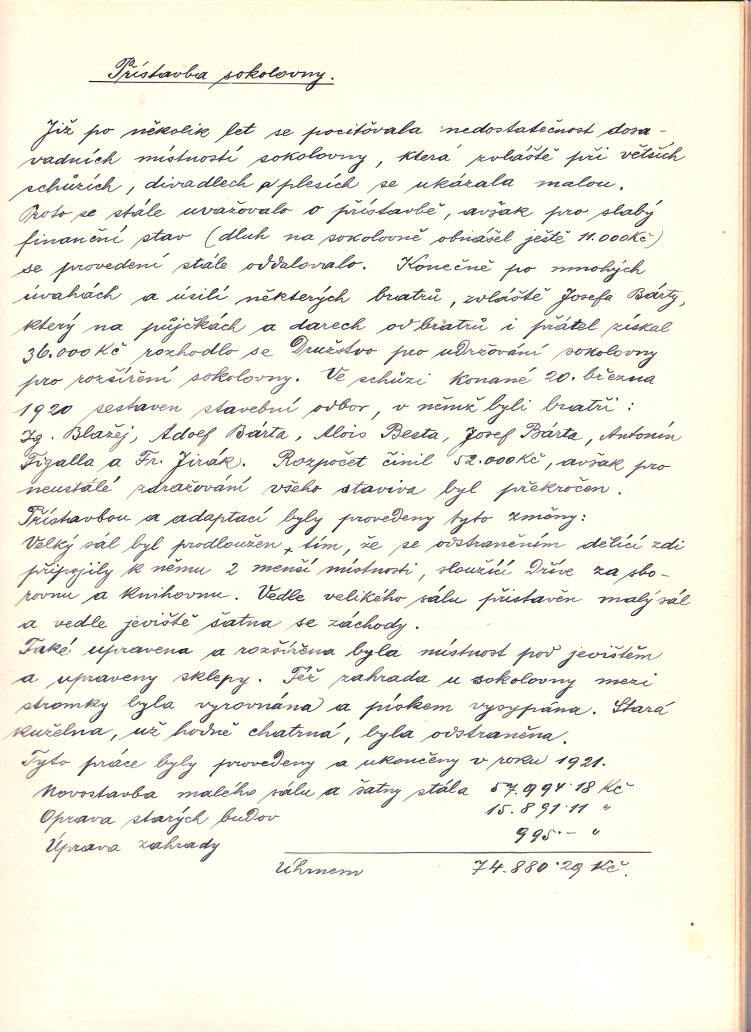 Přístavba sokolovny.
Již po několik let se pociťovala nedostatečnost dosa-
vadních místností sokolovny, která zvláště při větších
schůzích, divadlech a plesích se ukázala malou.
Proto se stále uvažovalo o přístavbě, avšak pro slabý
finanční stav (dluh na sokolovně obnášel ještě 11.000Kč)
se provedení stále oddalovalo. Konečně po mnohých
úvahách a úsilí některých bratrů, zvláště Josefa Bárty,
který na půjčkách a darech od bratrů i přátel získal
36.000Kč rozhodlo se Družstvo pro udržování sokolovny
pro rozšíření sokolovny. Ve schůzi konané 20. března
1920 sestaven stavební odbor, v němž byli bratři:
Ig. Blažej, Adolf Bárta, Alois Besta, Josef Bárta, Antonín
Figalla a Fr. Jirák. Rozpočet činil 52.000Kč, avšak pro
neustálé zdražování všeho staviva byl překročen.
Přístavbou a adaptací byly provedeny tyto změny:
Velký sál byl prodloužen tím, že se odstraněním dělící zdi
připojily k němu 2 menší místnosti, sloužící dříve za sbo-
rovnu a knihovnu. Vedle velikého sálu přistavěn malý sál
a vedle jeviště šatna se záchody.
Také upravena a rozšířena byla místnost pod jevištěm
a upraveny sklepy. Též zahrada u sokolovny mezi
stromky byla vyrovnána a pískem vysypána. Stará
kuželna, už hodně chatrná, byla odstraněna.
Tyto práce byly provedeny a ukončeny v roku 1921.
Novostavba malého sálu a šatny stála 57.994·18 Kč
Oprava starých budov 15.891·11 "
Úprava zahrady 995.— "
Úhrnem 74.880·29 Kč.